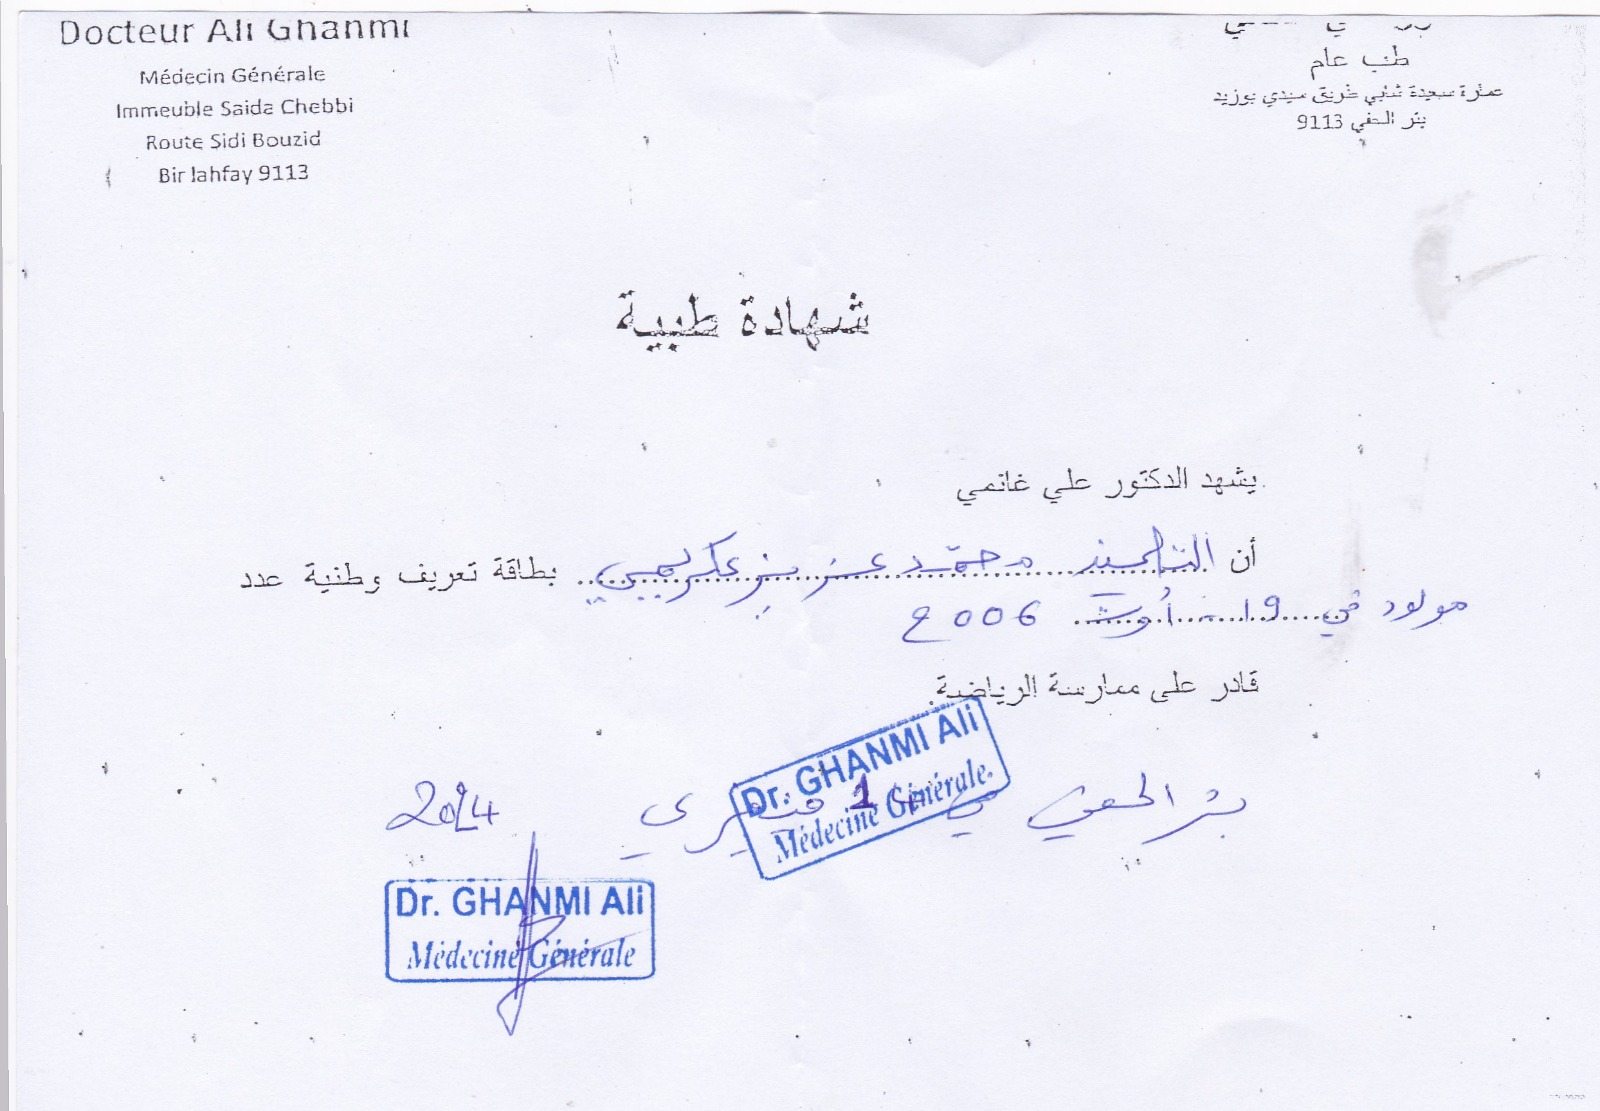 Docteur Ali Ghanmi
Médecin Générale
Immeuble Saida Chebbi
Route Sidi Bouzid
Bir lahfay 9113
طب عام
عمارة سعيدة شابي طريق سيدي بوزيد
بئر الحفي 9113
شهادة طبية
يشهد الدكتور علي غانمي
أن التلميذ محمّد عزيز عكريمي بطاقة تعريف وطنية عدد
مولود في 19 أوت 2006
قادر على ممارسة الرياضة
بئر الحفي في 1 فيفري 2024
Dr. GHANMI Ali
Médecine Générale
Dr. GHANMI Ali
Médecine Générale